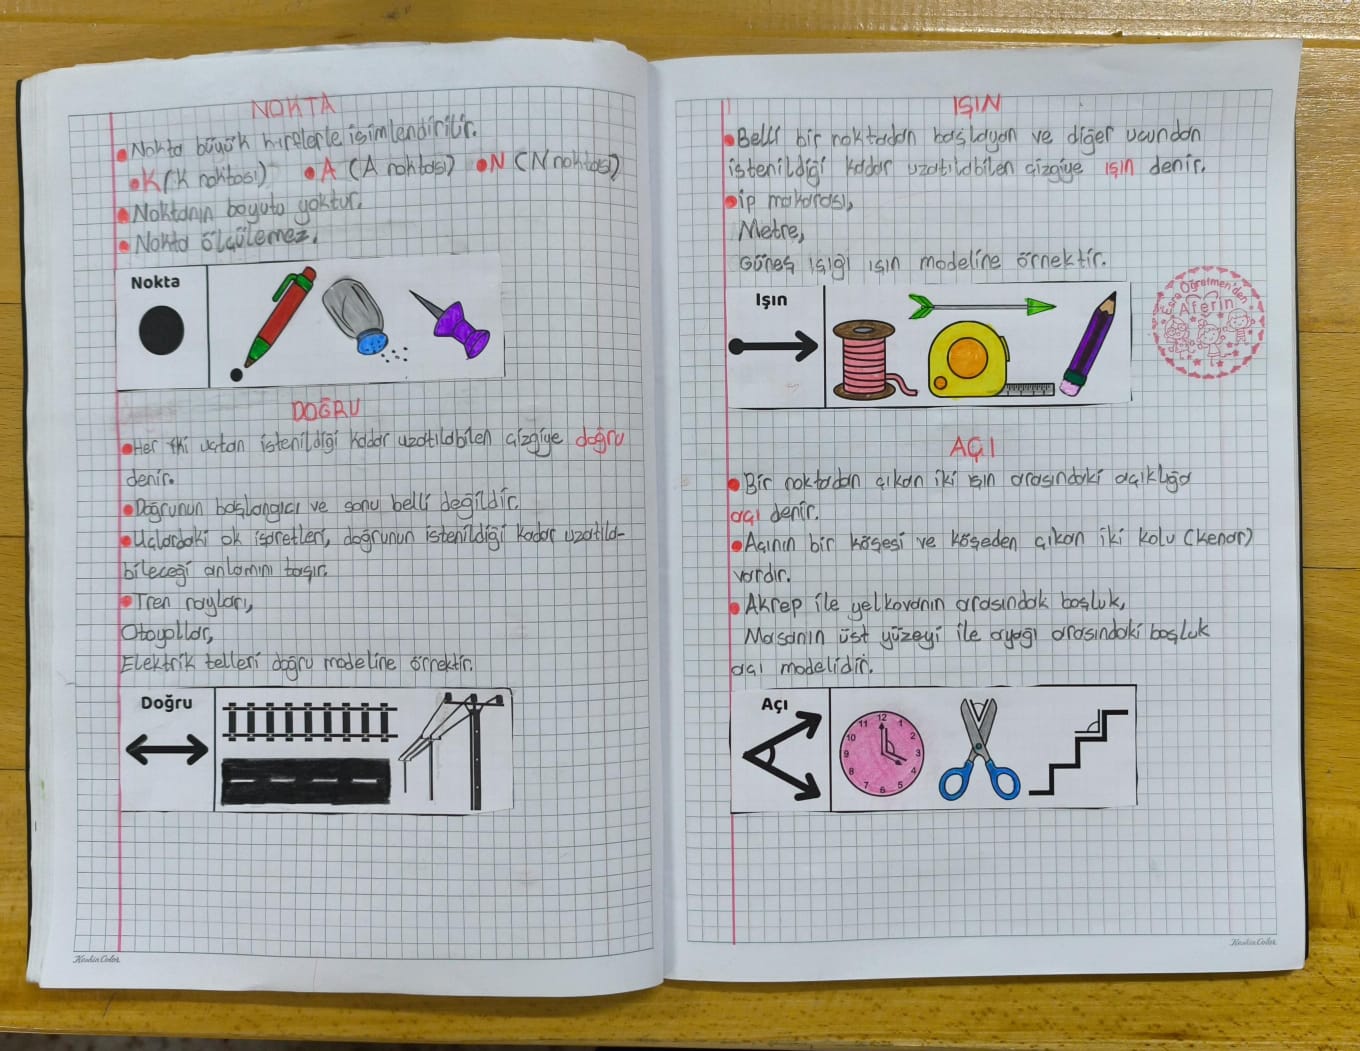 NOKTA
• Nokta büyük harflerle isimlendirilir.
• K (K noktası) • A (A noktası) • N (N noktası)
• Noktanın boyutu yoktur.
• Nokta ölçülemez.
Nokta
DOĞRU
• Her iki uçtan istenildiği kadar uzatılabilen çizgiye doğru
denir.
• Doğrunun başlangıcı ve sonu belli değildir.
• Uçlardaki ok işaretleri, doğrunun istenildiği kadar uzatıla-
bileceği anlamını taşır.
• Tren rayları,
Otoyollar,
Elektrik telleri doğru modeline örnektir.
Doğru
KeskinColor
IŞIN
• Belli bir noktadan başlayan ve diğer ucundan
istenildiği kadar uzatılabilen çizgiye ışın denir.
• ip makarası,
Metre,
Güneş ışığı ışın modeline örnektir.
Işın
Esra Öğretmen'den
Aferin
AÇI
• Bir noktadan çıkan iki ışın arasındaki açıklığa
açı denir.
• Açının bir köşesi ve köşeden çıkan iki kolu (kenar)
vardır.
• Akrep ile yelkovanın arasındak boşluk,
Masanın üst yüzeyi ile ayağı arasındaki boşluk
açı modelidir.
Açı
12 1 2 3 4 5 6 7 8 9 10 11
KeskinColor